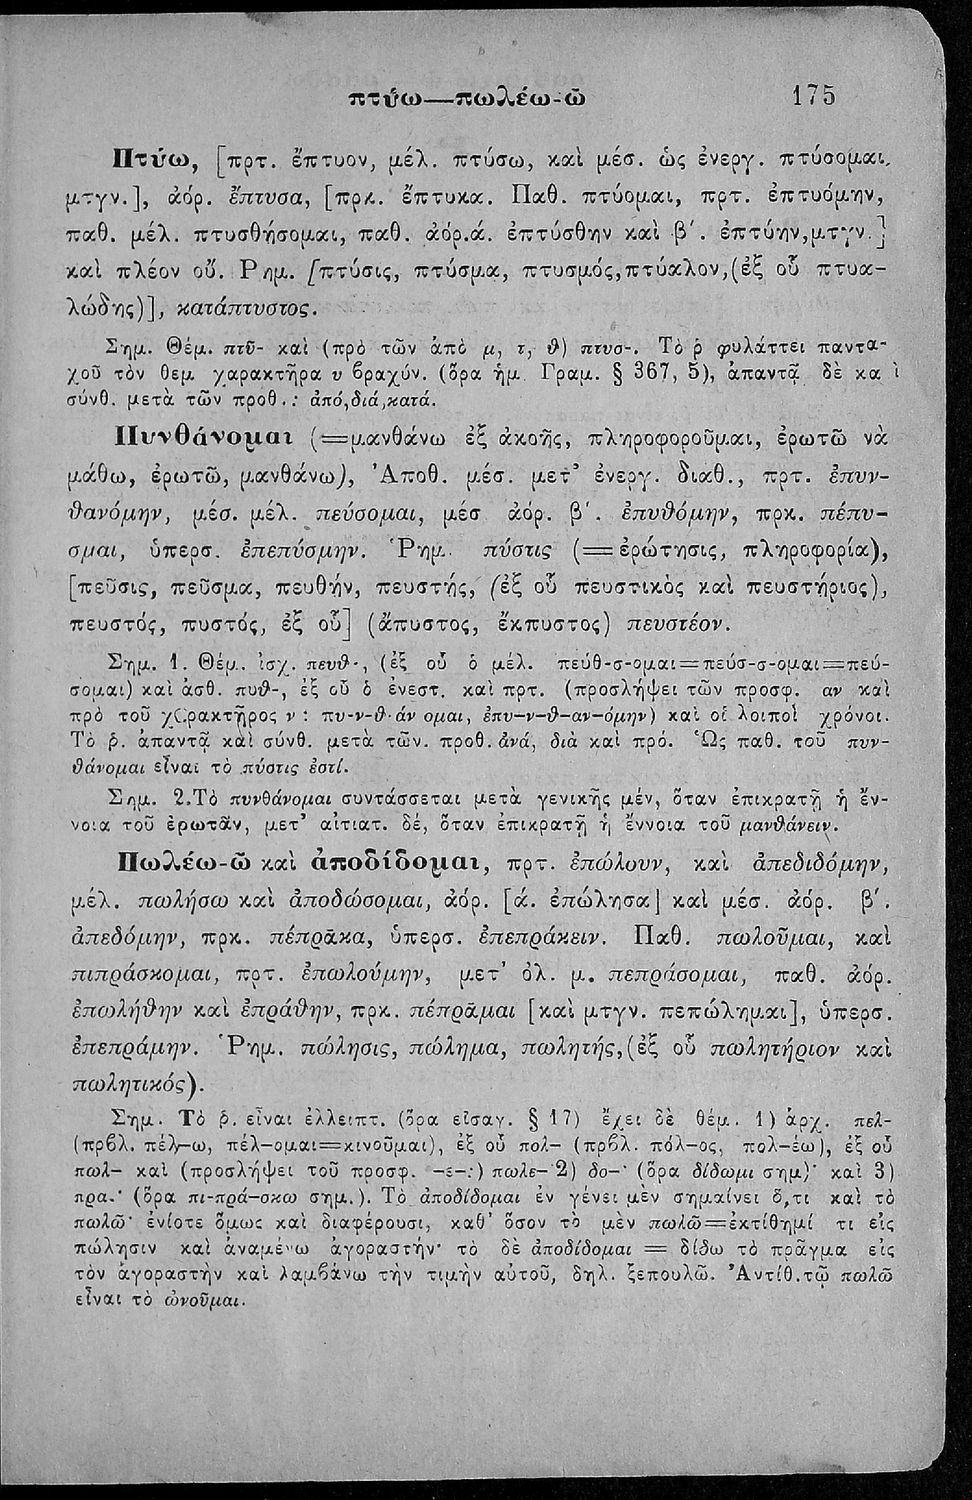 πτύω—πωλέω-ῶ 175
Πτύω, [πρτ. ἔπτυον, μέλ. πτύσω, καὶ μέσ. ὡς ἐνεργ. πτύσομαι,
μτγν.], ἀόρ. ἔπτυσα, [πρκ. ἔπτυκα. Παθ. πτύομαι, πρτ. ἐπτυόμην,
παθ. μέλ. πτυσθήσομαι, παθ. ἀόρ.ά. ἐπτύσθην καὶ β΄. ἐπτύην,μτγν.]
καὶ πλέον οὔ. Ρημ. [πτύσις, πτύσμα, πτυσμός,πτύαλον,(ἐξ οὗ πτυα-
λώδης)], κατάπτυστος.
Σημ. Θέμ. πτῡ- καὶ (πρὸ τῶν ἀπὸ μ, τ, θ) πτυσ-. Τὸ ῥ φυλάττει παντα-
χοῦ τὸν θεμ. χαρακτῆρα υ βραχύν. (ὅρα ἡμ. Γραμ. § 367, 5), ἀπαντᾷ δὲ κα ὶ
σύνθ. μετὰ τῶν προθ.: ἀπό,διά,κατά.
Πυνθάνομαι (=μανθάνω ἐξ ἀκοῆς, πληροφοροῦμαι, ἐρωτῶ νὰ
μάθω, ἐρωτῶ, μανθάνω), Ἀποθ. μέσ. μετ' ἐνεργ. διαθ., πρτ. ἐπυν-
θανόμην, μέσ. μέλ. πεύσομαι, μέσ ἀόρ. β΄. ἐπυθόμην, πρκ. πέπυ-
σμαι, ὑπερσ. ἐπεπύσμην. Ῥημ. πύστις (=ἐρώτησις, πληροφορία),
[πεῦσις, πεῦσμα, πευθήν, πευστής, (ἐξ οὗ πευστικὸς καὶ πευστήριος),
πευστός, πυστός, ἐξ οὗ] (ἄπυστος, ἔκπυστος) πευστέον.
Σημ. 1. Θέμ. ἰσχ. πευθ-, (ἐξ οὗ ὁ μέλ. πεύθ-σ-ομαι=πεύσ-σ-ομαι=πεύ-
σομαι) καὶ ἀσθ. πυθ-, ἐξ οὗ ὁ ἐνεστ. καὶ πρτ. (προσλήψει τῶν προσφ. αν καὶ
πρὸ τοῦ χαρακτῆρος ν : πυ-ν-θ-άν ομαι, ἐπυ-ν-θ-αν-όμην) καὶ οἱ λοιποὶ χρόνοι.
Τὸ ῥ. ἀπαντᾷ καὶ σύνθ. μετὰ τῶν. προθ. ἀνά, διὰ καὶ πρό. Ὡς παθ. τοῦ πυν-
θάνομαι εἶναι τὸ πύστις ἐστί.
Σημ. 2.Τὸ πυνθάνομαι συντάσσεται μετὰ γενικῆς μέν, ὅταν ἐπικρατῇ ἡ ἔν-
νοια τοῦ ἐρωτᾶν, μετ' αἰτιατ. δέ, ὅταν ἐπικρατῇ ἡ ἔννοια τοῦ μανθάνειν.
Πωλέω-ῶ καὶ ἀποδίδομαι, πρτ. ἐπώλουν, καὶ ἀπεδιδόμην,
μέλ. πωλήσω καὶ ἀποδώσομαι, ἀόρ. [ά. ἐπώλησα] καὶ μέσ. ἀόρ. β΄.
ἀπεδόμην, πρκ. πέπρᾱκα, ὑπερσ. ἐπεπράκειν. Παθ. πωλοῦμαι, καὶ
πιπράσκομαι, πρτ. ἐπωλούμην, μετ' ὀλ. μ. πεπράσομαι, παθ. ἀόρ.
ἐπωλήθην καὶ ἐπράθην, πρκ. πέπρᾱμαι [καὶ μτγν. πεπώλημαι], ὑπερσ.
ἐπεπράμην. Ῥημ. πώλησις, πώλημα, πωλητής,(ἐξ οὗ πωλητήριον καὶ
πωλητικός).
Σημ. Τὸ ῥ. εἶναι ἐλλειπτ. (ὅρα εἰσαγ. § 17) ἔχει δὲ θέμ. 1) ἀρχ. πελ-
(πρβλ. πέλ-ω, πέλ-ομαι=κινοῦμαι), ἐξ οὗ πολ- (πρβλ. πόλ-ος, πολ-έω), ἐξ οὗ
πωλ- καὶ (προσλήψει τοῦ προσφ. -ε-:) πωλε- 2) δο-· (ὅρα δίδωμι σημ.)· καὶ 3)
πρα-· (ὅρα πι-πρά-σκω σημ.). Τὸ ἀποδίδομαι ἐν γένει μὲν σημαίνει ὅ,τι καὶ τὸ
πωλῶ· ἐνίοτε ὅμως καὶ διαφέρουσι, καθ' ὅσον τὸ μὲν πωλῶ=ἐκτίθημί τι εἰς
πώλησιν καὶ ἀναμένω ἀγοραστήν· τὸ δὲ ἀποδίδομαι = δίδω τὸ πρᾶγμα εἰς
τὸν ἀγοραστὴν καὶ λαμβάνω τὴν τιμὴν αὐτοῦ, δηλ. ξεπουλῶ. Ἀντίθ.τῷ πωλῶ
εἶναι τὸ ὠνοῦμαι.